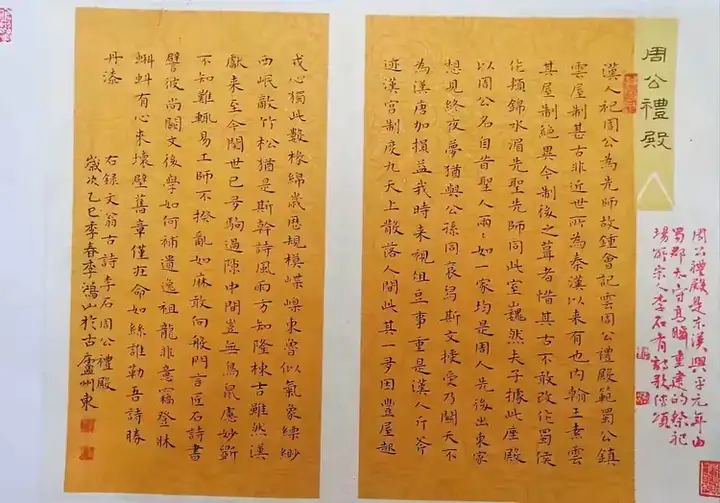 周公禮殿
漢人祀周公為先師故鍾會記雲周公禮殿範蜀公鎮
雲屋制甚古非近世所為秦漢以来有也内翰王素雲
其屋制絕異今制後之葺者惜其古不敢改作蜀侯
作頖錦水湄先聖先師同此室巍然夫子據此座殿
以周公名自昔聖人兩〻如一家均是周人先後出東家
想見終夜夢猶與公孫同袞舄斯文授受乃關天不
為漢唐加損益我時来視俎豆事重是漢人斤斧
迹漢宮制度九天上散落人間此其一爭因豐屋起
戎心獨此數椽綿歲歷規模嶫嶫東魯似氣象縹緲
西岷敵竹松猶是斯幹詩風雨方知隆棟吉雖然漢
獻来至今閱世已多駒過隙中間豈無鳥鼠慮妙斲
不知難輒易工師不揆亂如麻敢向般門言匠石詩書
譬彼尚闕文後學如何補遺逸祖龍非意竊登牀
蝌蚪有心来壞壁舊章僅在命如絲誰勒吾詩勝
丹漆
右錄文翁古詩李石周公禮殿
歲次乙巳季春李鴻山於古廬州東
周公禮殿是东漢興平元年由
蜀郡太守重建的祭祀
場所宗人李石有詩歌傳頌